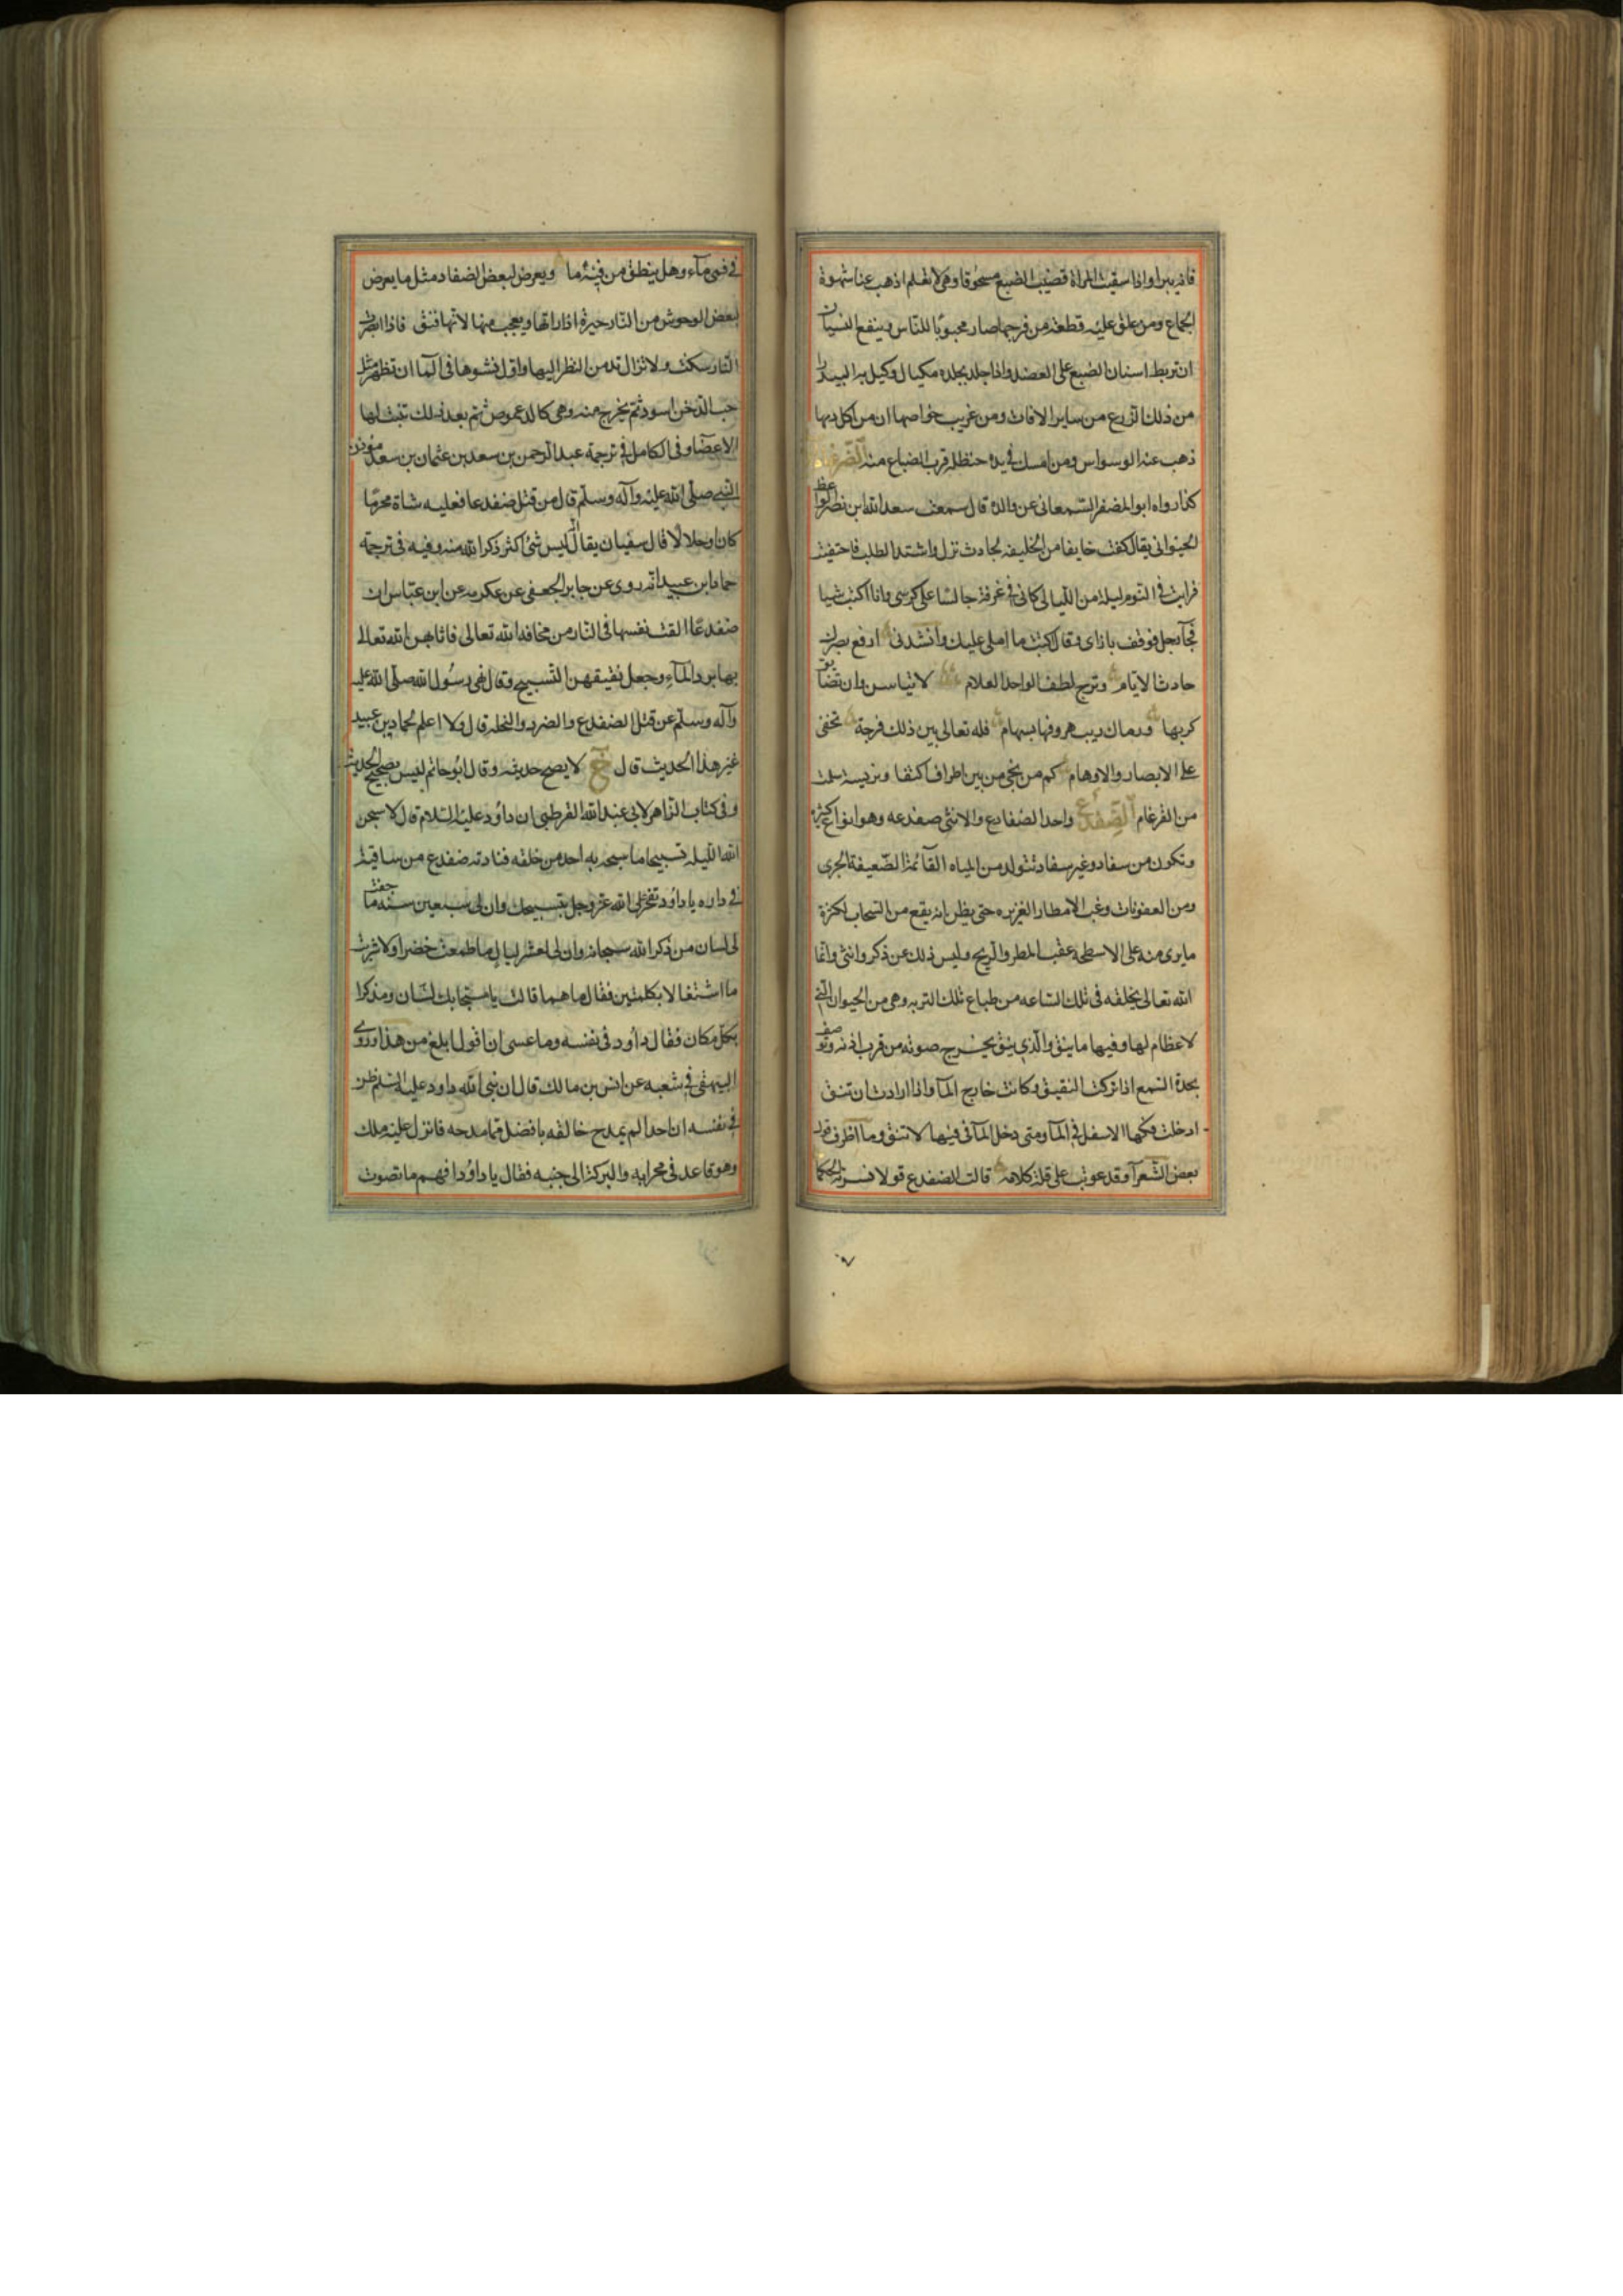 فانه يبرا واذا سقيت المراة قضيب الضبع مسحوقا وهى لا تعلم اذهب عنها شهوة
الجماع ومن علق عليه قطعة من فرجها صار محبوبًا للناس وينفع النسيان
ان تربط اسنان الضبع على العضد واذا جلد بجلده مكيال وكيل به البيدار
من ذلك الزرع من ساير الافات ومن غريب خواصها ان من اكل دمها
ذهب عنه الوسواس ومن امسك فى يده حنظلة قرب الضباع منه الضرغام
كذا رواه ابو المضفر السمعانى عن والده قال سمعت سعد الله ابن نصر الواعظ
الحيوانى يقال كنت خايفا من الخليفه لحادث نزل واشتد الطلب فاختفيت
فرايت فى النوم ليلة من الليالى كانى فى غرفة جالسًا على كرسى وانا اكتب شيا
فجآ رجل فوقف بازاى وقال اكتب ما املى عليك وانشدنى ادفع بصبرك
حادث الايام وترج لطف الواحد العلام لا تياسن وان تضايق
كربها ورماك ريب صروفها بسهام فله تعالى بين ذلك فرجة تخفى
على الابصار والاوهام كم من نجى من بين اطراف القنا وفريسة سلمت
من الضرغام الضفدع واحد الضفادع والانثى ضفدعه وهو انواع كثيرة
وتكون من سفاد وغير سفاد تتولد من المياه القائمة الضعيفة الجرى
ومن العفونات وغب الامطار الغزيره حتى يظن انه يقع من السحاب لكثرة
مايرى منه على الاسطحة عقب المطر والريح وليس ذلك عن ذكر وانثى وانما
الله تعالى يخلقه فى تلك الساعه من طباع تلك التربه وهى من الحيوان التى
لا عظام لها وفيها ما ينق والذى ينق يخرج صوته من قرب اذنه وتوصف
بحدة السمع اذا تركت النقيق وكانت خارج المآ واذا ارادت ان تنق
ادخلت فكها الاسفل فى المآ ومتى دخل المآ فى فيها لا تنق وما اظرف قول
بعض الشعرآ وقد عوتب على قلة كلامه قالت الضفدع قولا فسرته الحكما
فى فمى مآء وهل ينطق من فيه ما ويعرض لبعض الضفادع مثل ما يعرض
لبعض الوحوش من النار حيرة اذا راتها ويعجب منها لانها تنق فاذا ابصرت
النار سكتت ولا تزال تدمن النظر اليها واول نشوها فى المآ ان تظهر مثل
حب الدخن اسود ثم يخرج منه وهى كالدعموص ثم بعد ذلك تنبت لها
الاعضآ وفى الكامل فى ترجمة عبد الرحمن بن سعد بن عثمان بن سعد مؤذن
النبى صلى الله عليه وآله وسلم قال من قتل ضفدعا فعليه شاة محرمًا
كان او حلالا قال سفيان يقال انه ليس شئ اكثر ذكر الله منه وفيه فى ترجمة
حماد ابن عبيد انه روى عن جابر الجعفى عن عكرمه عن ابن عباس ان
ضفدعًا القت نفسها فى النار من مخافة الله تعالى فاثابهن الله تعالى
بها برد المآء وجعل نقيقهن التسبيح وقال نهى رسول الله صلى الله عليه
وآله وسلم عن قتل الضفدع والصرد والنحلة قال ولا اعلم لحماد بن عبيد
غير هذا الحديث قال خ لا يصح حديثه وقال ابو حاتم ليس بصحيح الحديث
وفى كتاب الزاهر لابى عبد الله القرطبى ان داؤد عليه السلام قال لاسبحن
الله الليلة تسبيحا ما سبحه به احد من خلقه فنادته ضفدع من ساقية
فى داره يا داؤد تفخر على الله عز وجل بتسبيحك وان لى سبعين سنه ما جفت
لى لسان من ذكر الله سبحانه وان لى لعشر ليال ما طعمت خضرا ولا شربت
ما اشتغالا بكلمتين فقال ما هما قالت يا مسبحا بكل لسان ومذكرا
بكل مكان فقال داؤد فى نفسه وما عسى ان اقول ابلغ من هذا وروى
البيهقى فى شعبه عن انس بن مالك قال ان نبى الله داود عليه السلم ظن
فى نفسه ان احدا لم يمدح خالقه بافضل مما مدحه فانزل عليه ملك
وهو قاعد فى محرابه والبركة الى جنبه فقال يا داؤد افهم ما تصوت